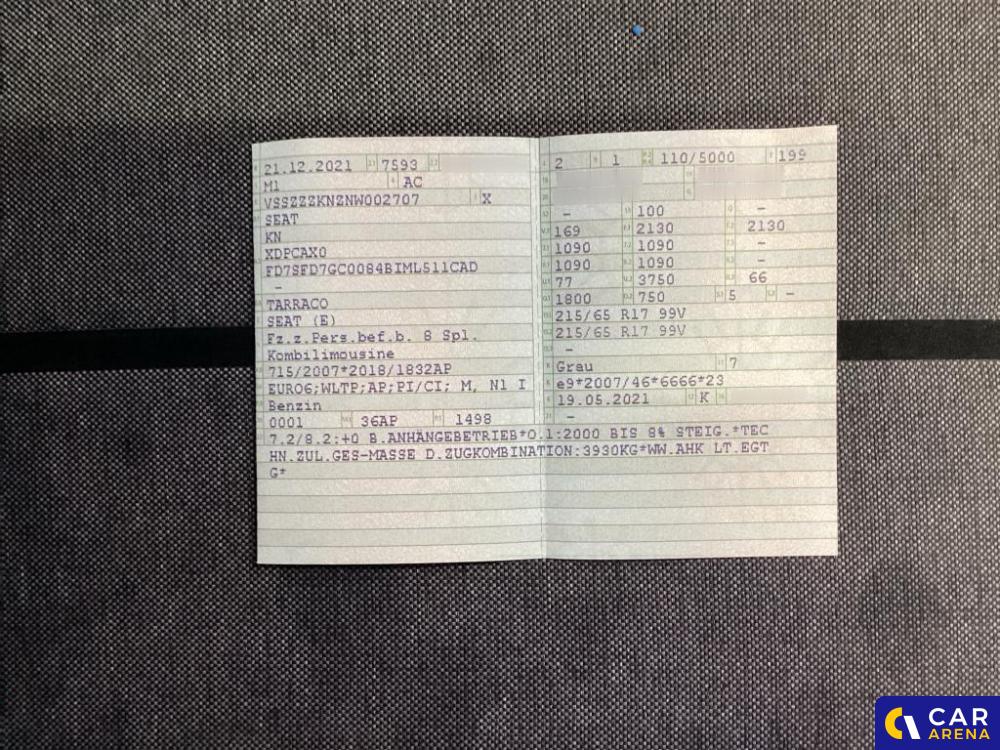 21.12.2021 7593
M1 AC
VSSZZZKNZNW002707 X
SEAT
KN
XDPCAX0
FD7SFD7GC0084BIML511CAD
-
TARRACO
SEAT (E)
Fz.z.Pers.bef.b. 8 Spl.
Kombilimousine
715/2007*2018/1832AP
EURO6;WLTP;AP;PI/CI; M, N1 I
Benzin
0001 36AP 1498
2 1 110/5000 199
- 100 -
169 2130 2130
1090 1090 -
1090 1090 -
77 3750 66
1800 750 5 -
215/65 R17 99V
215/65 R17 99V
-
Grau 7
e9*2007/46*6666*23
19.05.2021 K
-
7.2/8.2:+0 B.ANHÄNGEBETRIEB*O.1:2000 BIS 8% STEIG.*TEC
HN.ZUL.GES-MASSE D.ZUGKOMBINATION:3930KG*WW.AHK LT.EGT
G*
CAR
ARENA